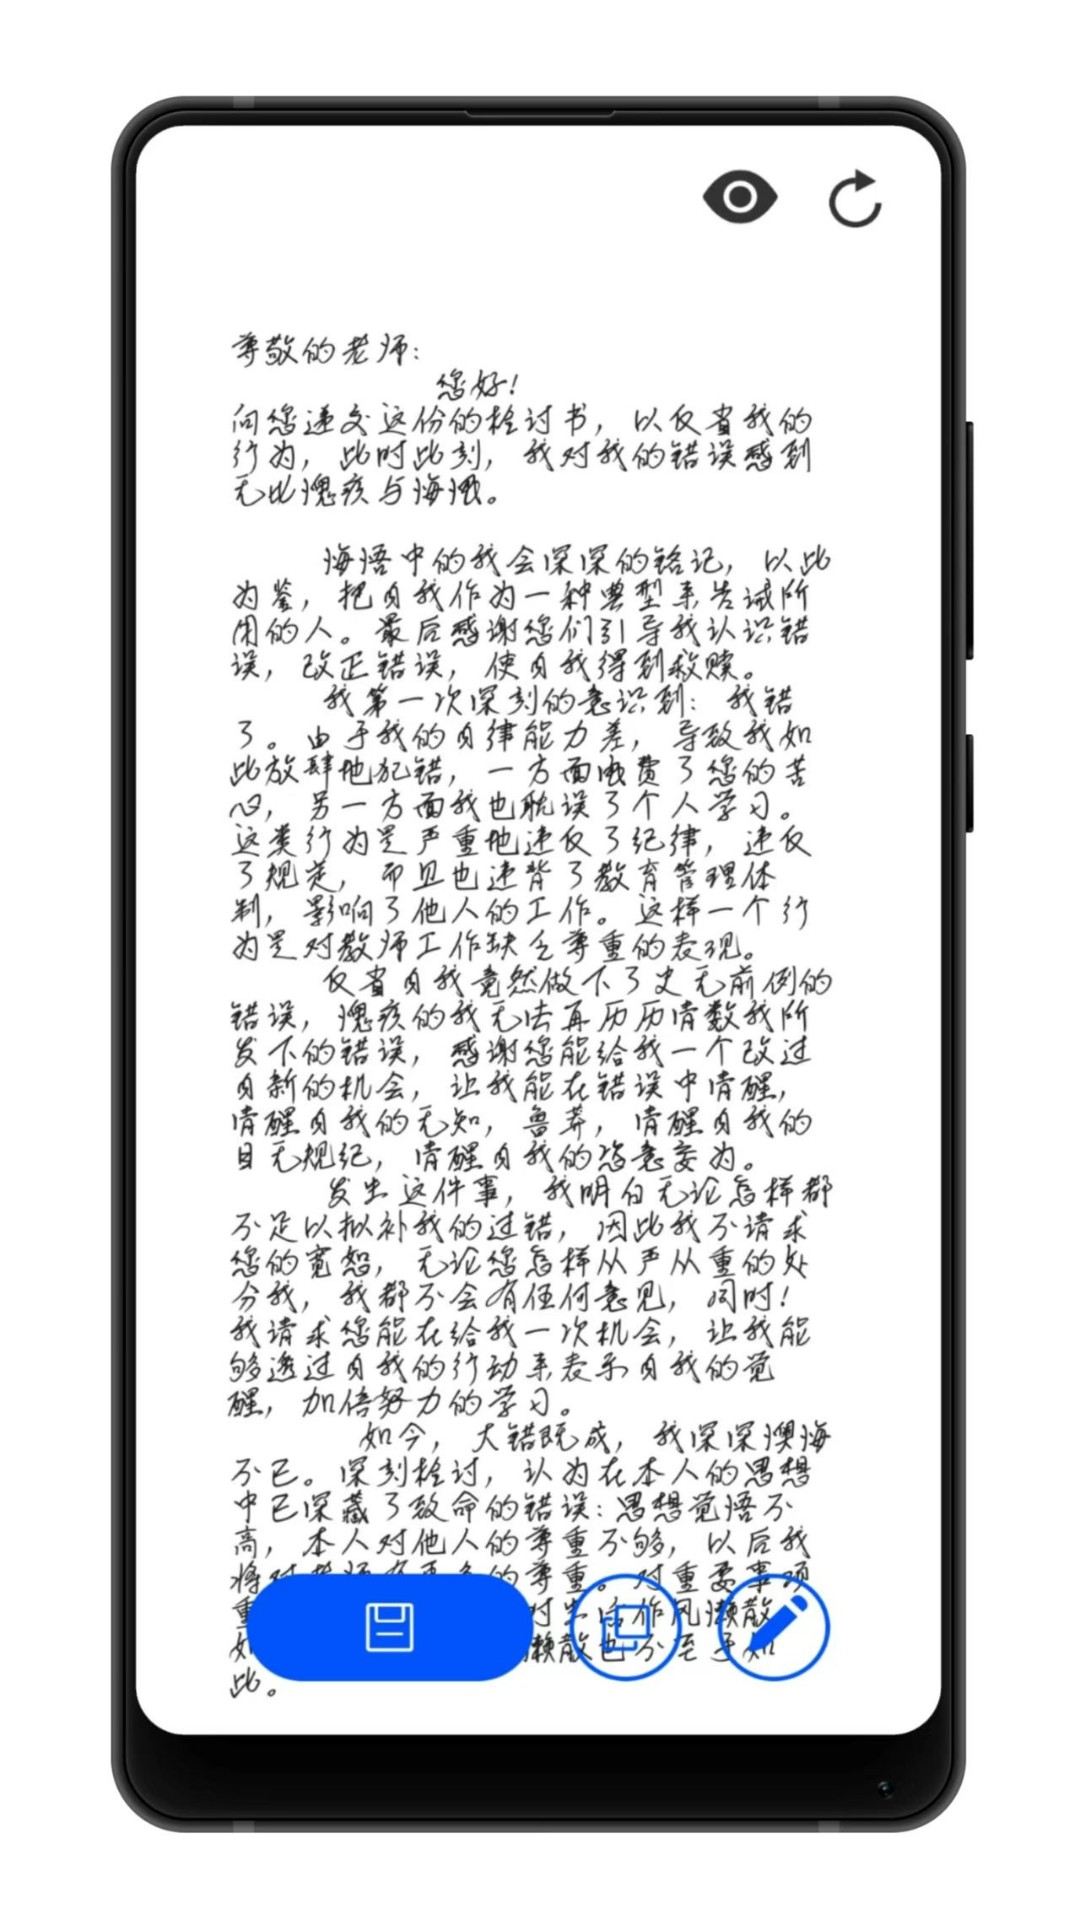 尊敬的老师：
您好！
向您递交这份的检讨书，以反省我的
行为，此时此刻，我对我的错误感到
无比愧疚与悔恨。
悔悟中的我会深深的铭记，以此
为鉴，把自我作为一种典型来告诫所
用的人。最后感谢您们引导我认识错
误，改正错误，使自我得到救赎。
我第一次深刻的意识到：我错
了。由于我的自律能力差，导致我如
此放肆地犯错，一方面浪费了您的苦
心，另一方面我也耽误了个人学习。
这类行为是严重地违反了纪律，违反
了规定，而且也违背了教育管理体
制，影响了他人的工作。这样一个行
为是对教师工作缺乏尊重的表现。
反省自我竟然做下了史无前例的
错误，愧疚的我无法再历历清数我所
发下的错误，感谢您能给我一个改过
自新的机会，让我能在错误中清醒，
清醒自我的无知，鲁莽，清醒自我的
目无规纪，清醒自我的恣意妄为。
发出这件事，我明白无论怎样都
不足以拟补我的过错，因此我不请求
您的宽恕，无论您怎样从严从重的处
分我，我都不会有任何意见，同时！
我请求您能在给我一次机会，让我能
够透过自我的行动来表示自我的觉
醒，加倍努力的学习。
如今，大错既成，我深深懊悔
不已。深刻检讨，认为在本人的思想
中已深藏了致命的错误：思想觉悟不
高，本人对他人的尊重不够，以后我
将对老师有更多的尊重。对重要事项
重 对生活作风懒散
如 懒散也不至于如
此。